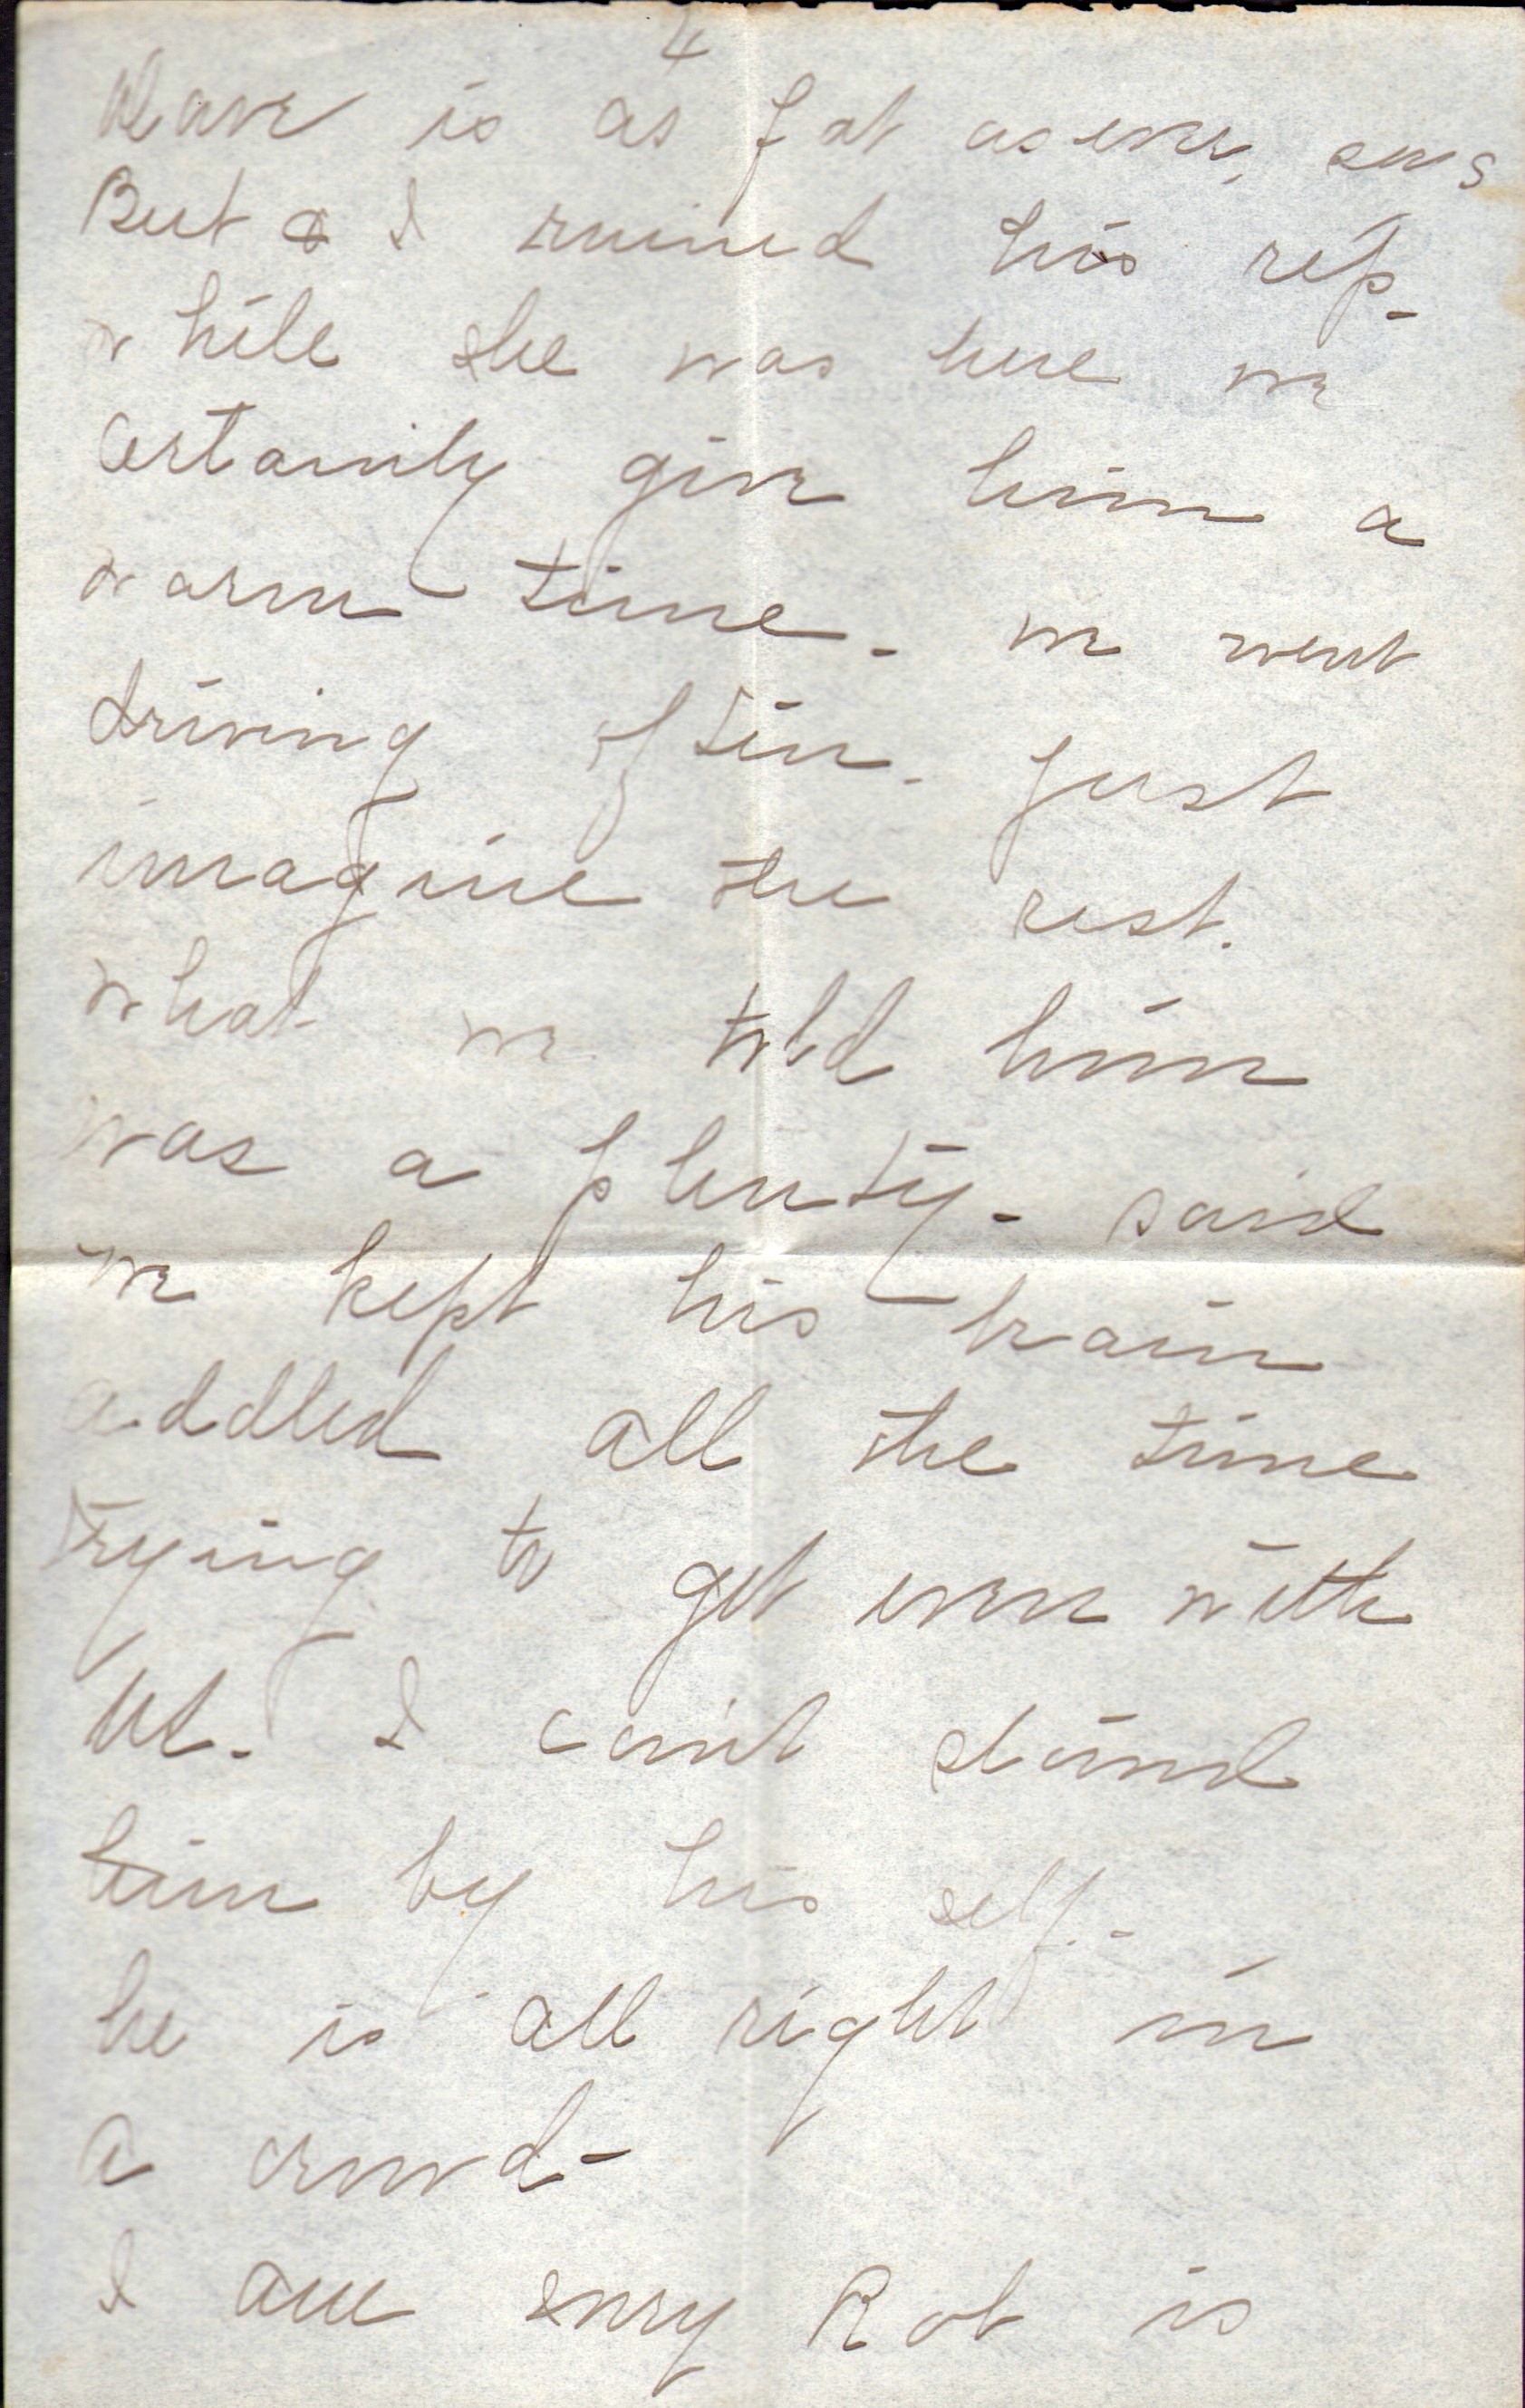 4
Dave is as fat as ever, says
But & I ruined his rep-
while she was here we
certainly give him a
warm time - we went
driving often - Just
imagine the rest.
what we told him
was a plenty - said
we kept his brain
addled all the time
trying to get even with
us. I can't stand
him by his self. -
he is all right in
a crowd -
I am sorry Rob is